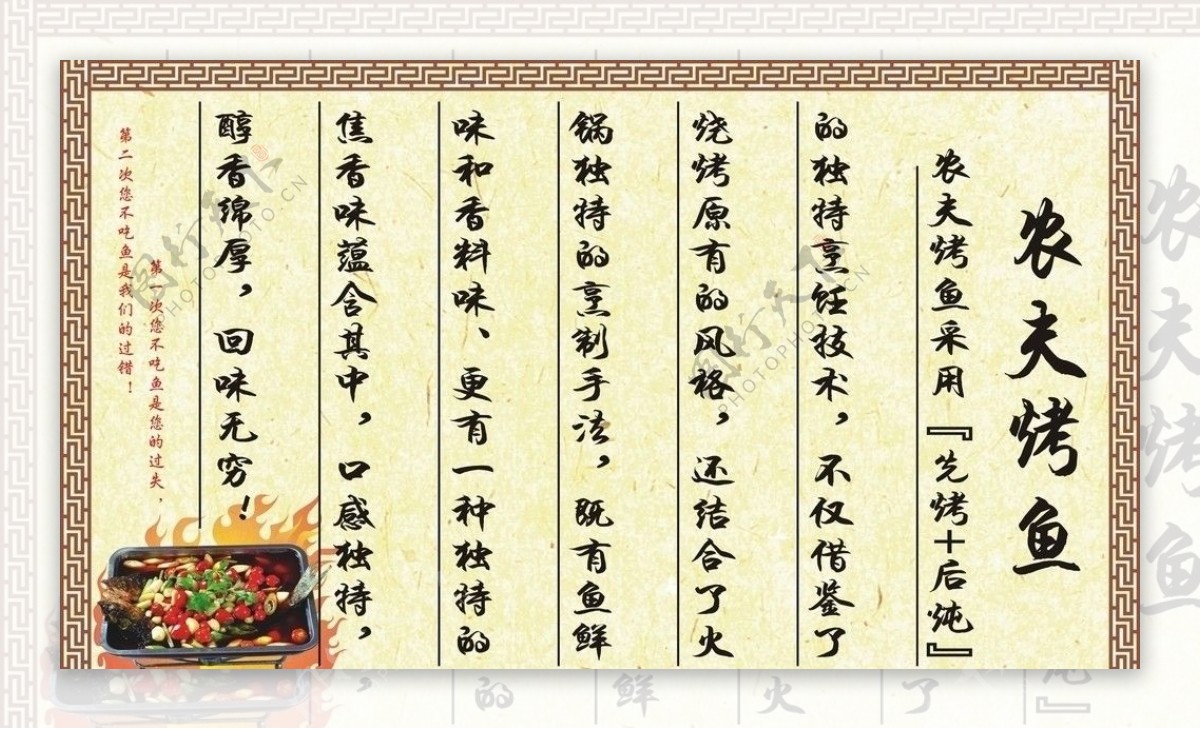 农夫烤鱼
农夫烤鱼采用『先烤+后炖』
的独特烹饪技术，不仅借鉴了
烧烤原有的风格，还结合了火
锅独特的烹制手法，既有鱼鲜
味和香料味、更有一种独特的
焦香味蕴含其中，口感独特，
醇香绵厚，回味无穷！
第一次您不吃鱼是您的过失，
第二次您不吃鱼是我们的过错！
图行天下
PHOTOPHOTO.CN
图行天下
PHOTOPHOTO.CN